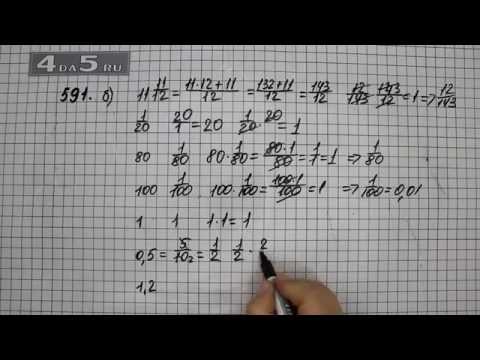 4DA5.RU
591. б) 11 11/12 = (11·12+11)/12 = (132+11)/12 = 143/12 12/143 · 143/12 = 1 => 12/143
1/20 20/1 = 20 1/20 · 20 = 1
80 1/80 80 · 1/80 = (80·1)/80 = 1/1 = 1 => 1/80
100 1/100 100 · 1/100 = (100·1)/100 = 1 => 1/100 = 0,01
1 1 1·1 = 1
0,5 = 5/10₂ = 1/2 1/2 · 2
1,2